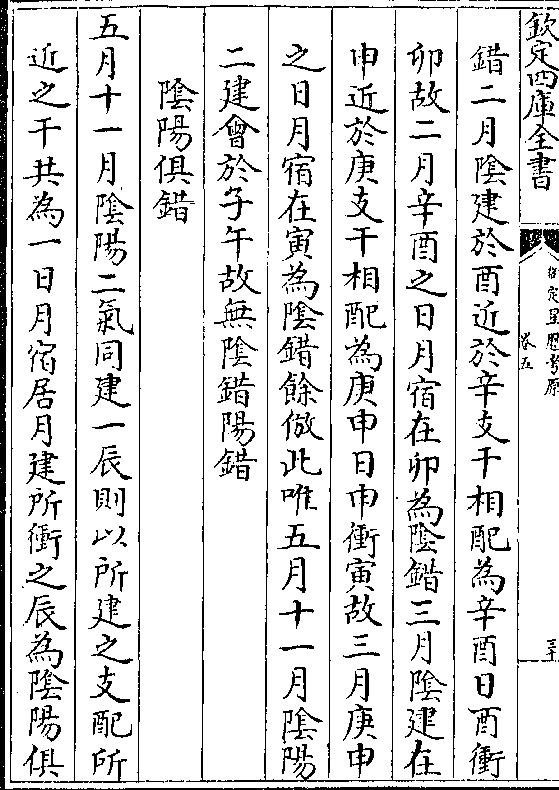 欽定四庫全書
御定星歷考原
卷五
三十
錯二月陰建於酉近於辛支干相配為辛酉日酉衝
卯故二月辛酉之日月宿在卯為陰錯三月陰建在
申近於庚支干相配為庚申日申衝寅故三月庚申
之日月宿在寅為陰錯餘倣此唯五月十一月陰陽
二建會於子午故無陰錯陽錯
陰陽俱錯
五月十一月陰陽二氣同建一辰則以所建之支配所
近之干共為一日月宿居月建所衝之辰為陰陽俱